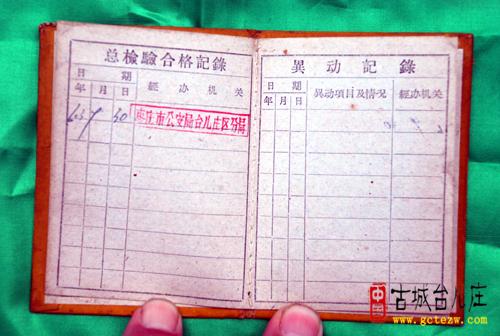 总檢驗合格記錄
日期
年月日
經办机关
枣庄市公安局台儿庄区分局
異动記錄
日期
年月日
異动項目及情况
經办机关
中国
古城台儿庄
www.gctezw.com